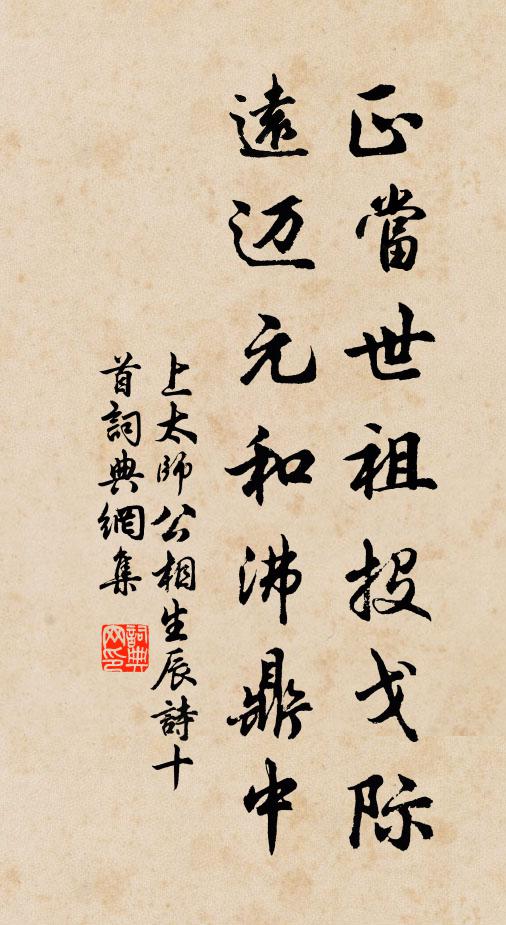 正當世祖投戈际
遠迈元和沸鼎中
上太師公相生辰詩十
首詞典網集
詞典网印